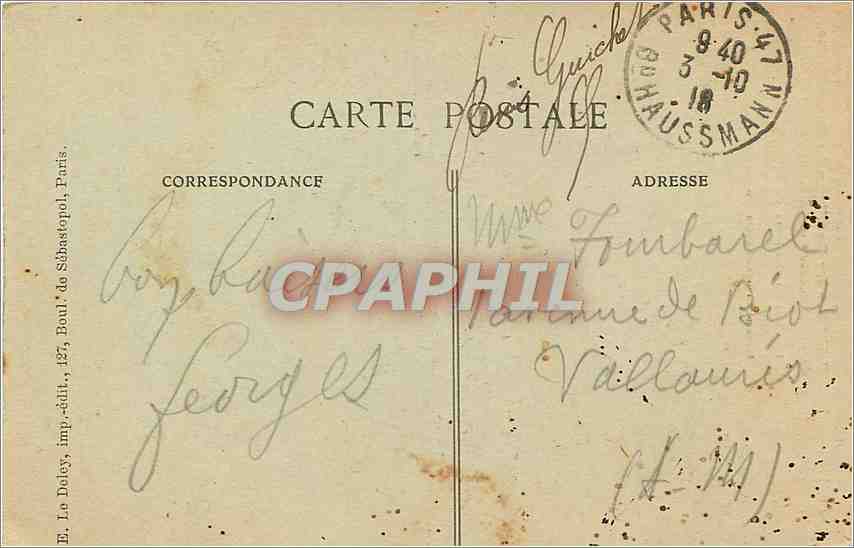 PARIS · 47
8 40
3 -10
18
Bd HAUSSMANN
Guichet
CARTE POSTALE
CORRESPONDANCE
ADRESSE
Georges
Mme Tombarel
de Biot
Vallauris
(A-M)
CPAPHIL
E. Le Deley, imp.-édit., 127, Boul.d de Sébastopol, Paris.